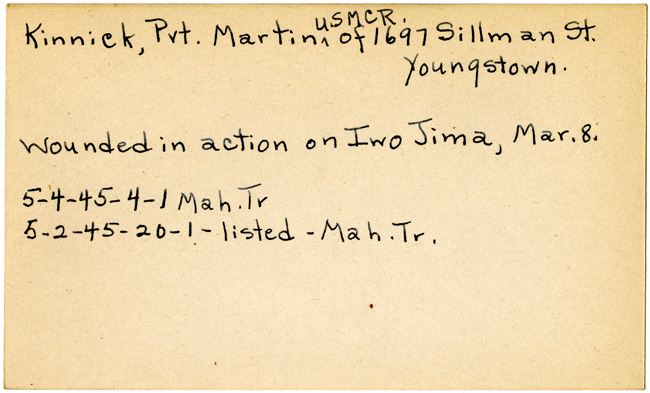 Kinnick, Pvt. Martin, USMCR. of 1697 Sillman St.
Youngstown.
Wounded in action on Iwo Jima, Mar. 8.
5-4-45-4-1 Mah. Tr
5-2-45-20-1 - listed - Mah. Tr.